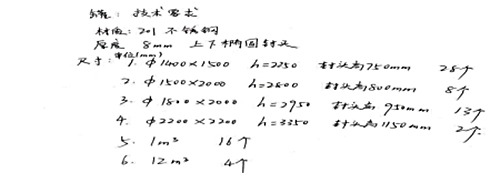 罐: 技术要求
材质: 201 不锈钢
厚度 8mm 上下椭圆封头
尺寸: 单位(mm)
1. Φ1400×1500 h=2250 封头高750mm 28个
2. Φ1500×2000 h=2800 封头高800mm 8个
3. Φ1800×2000 h=2950 封头高950mm 13个
4. Φ2200×2200 h=3350 封头高1150mm 2个
5. 1m³ 16个
6. 12m³ 4个